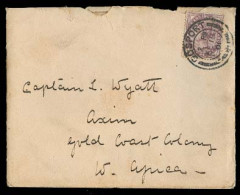 GOSPORT
Captain L. Wyatt
Axim
Gold Coast Colony
W. Africa —